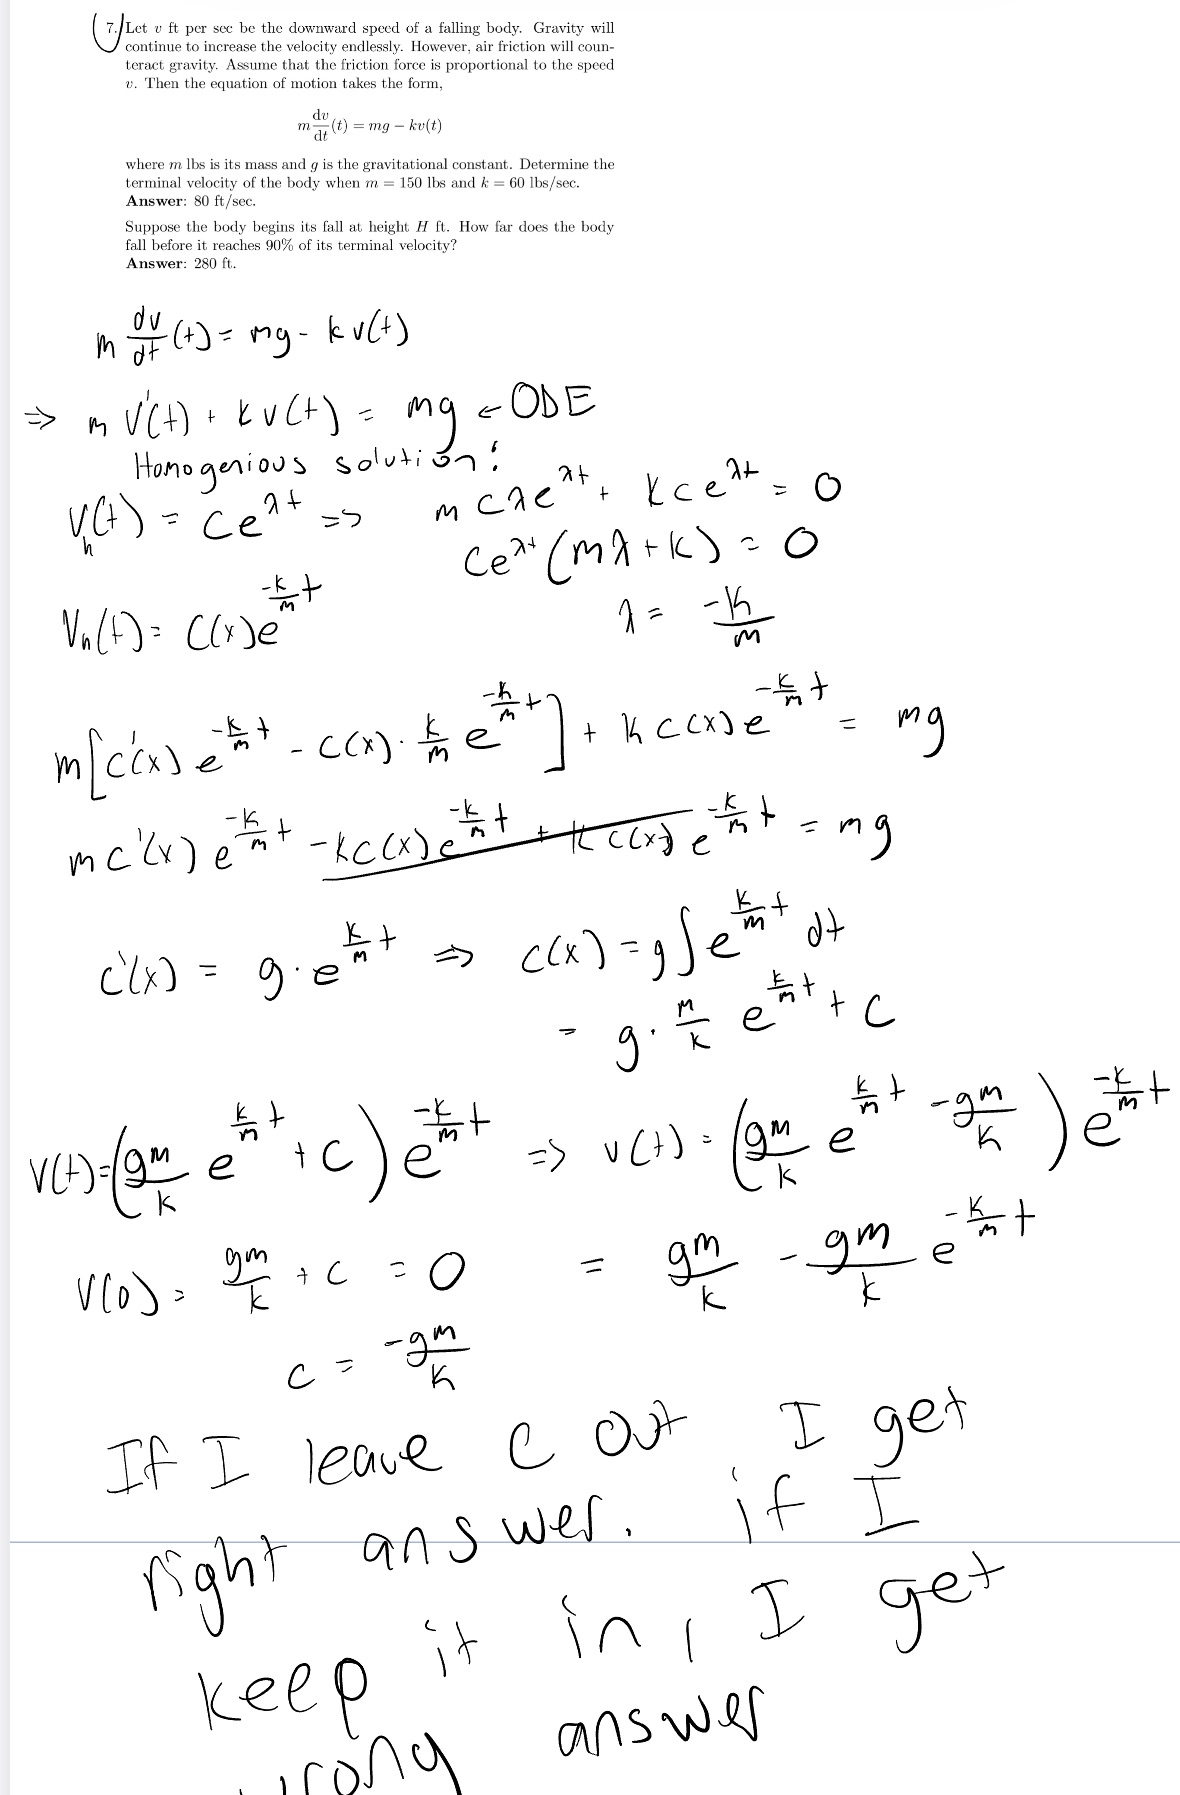 7. Let v ft per sec be the downward speed of a falling body. Gravity will
continue to increase the velocity endlessly. However, air friction will coun-
teract gravity. Assume that the friction force is proportional to the speed
v. Then the equation of motion takes the form,
m dv/dt (t) = mg − kv(t)
where m lbs is its mass and g is the gravitational constant. Determine the
terminal velocity of the body when m = 150 lbs and k = 60 lbs/sec.
Answer: 80 ft/sec.
Suppose the body begins its fall at height H ft. How far does the body
fall before it reaches 90% of its terminal velocity?
Answer: 280 ft.
m dv/dt (t) = mg - kv(t)
⇒ m v'(t) + kv(t) = mg ← ODE
Homogenious solution:
v_h(t) = ce^{λt} => mcλe^{λt} + kce^{λt} = 0
ce^{λt}(mλ + k) = 0
V_h(t) = c(x)e^{-k/m t} λ = -k/m
m[c'(x)e^{-k/m t} - c(x)·k/m e^{-k/m t}] + kc(x)e^{-k/m t} = mg
mc'(x)e^{-k/m t} - kc(x)e^{-k/m t} + kc(x)e^{-k/m t} = mg
c'(x) = g·e^{k/m t} ⇒ c(x) = g∫e^{k/m t} dt
= g·m/k e^{k/m t} + c
V(t) = (gm/k e^{k/m t} + c)e^{-k/m t} => v(t) = (gm/k e^{k/m t} - gm/k)e^{-k/m t}
V(0) = gm/k + c = 0 = gm/k - gm/k e^{-k/m t}
c = -gm/k
If I leave c out I get
right answer. if I
keep it in, I get
wrong answer